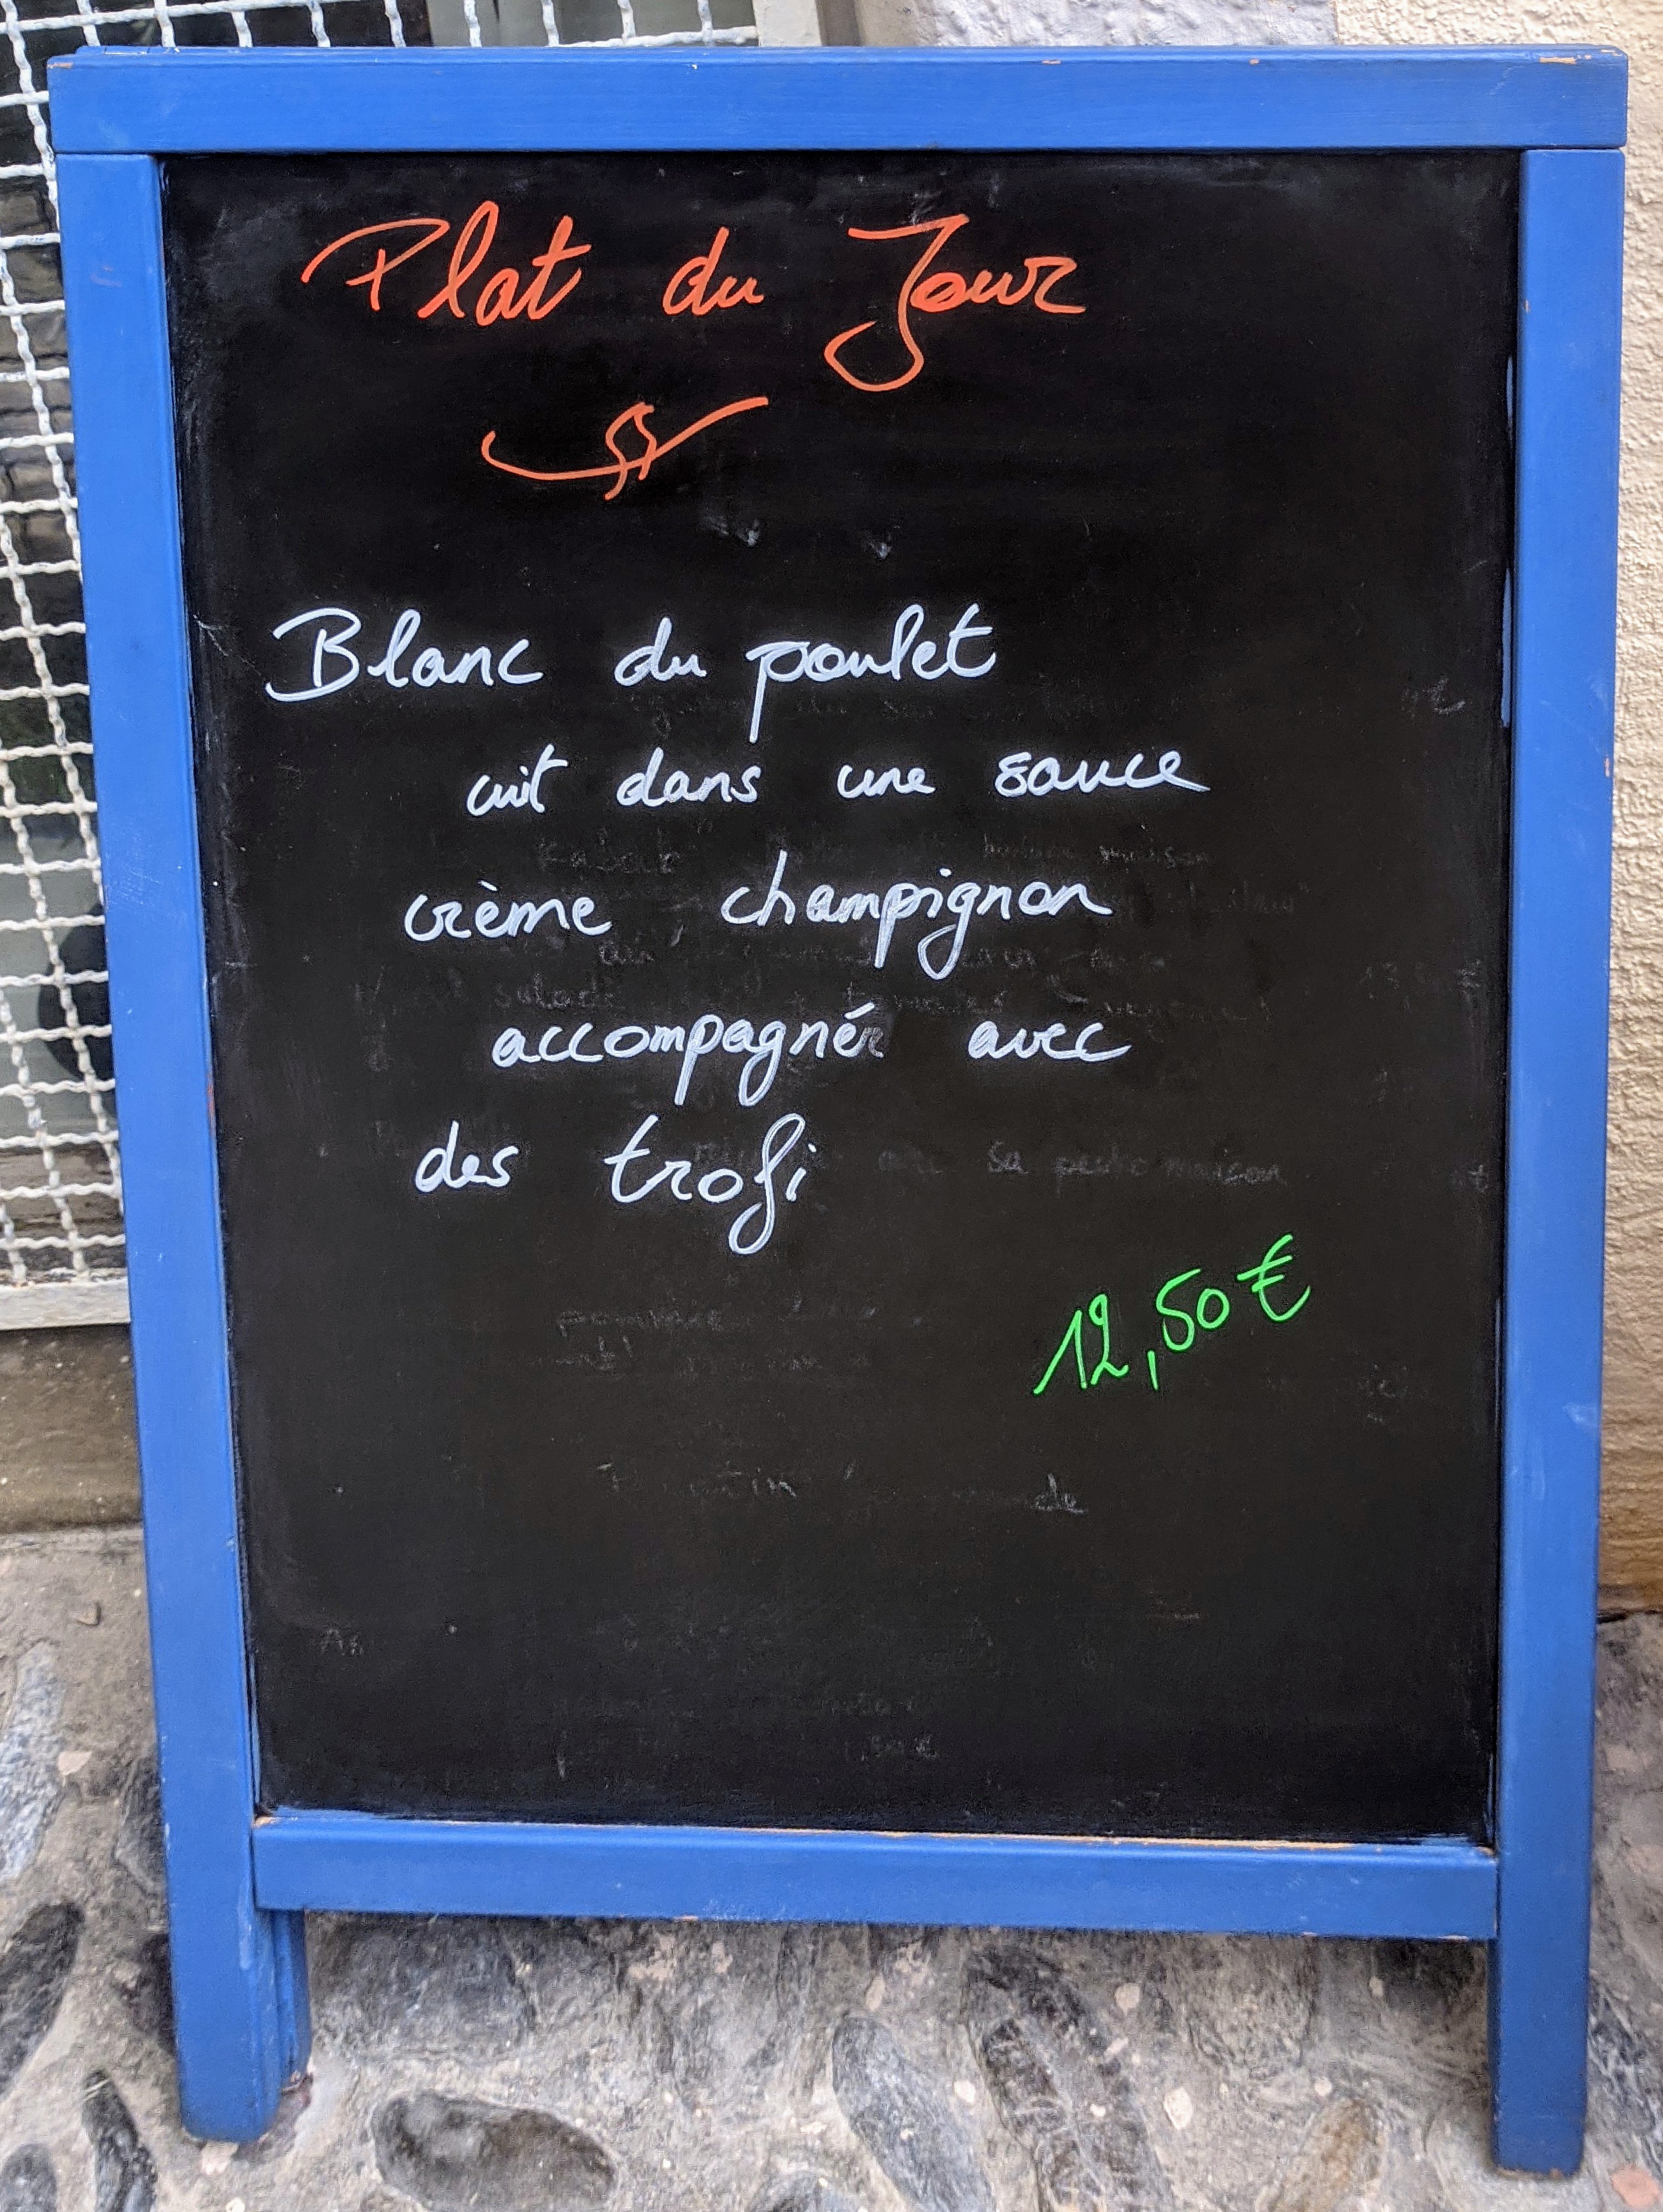 Plat du Jour
Blanc du poulet
cuit dans une sauce
crème champignon
accompagné avec
des trofi
sa pesto maison
12,50 €